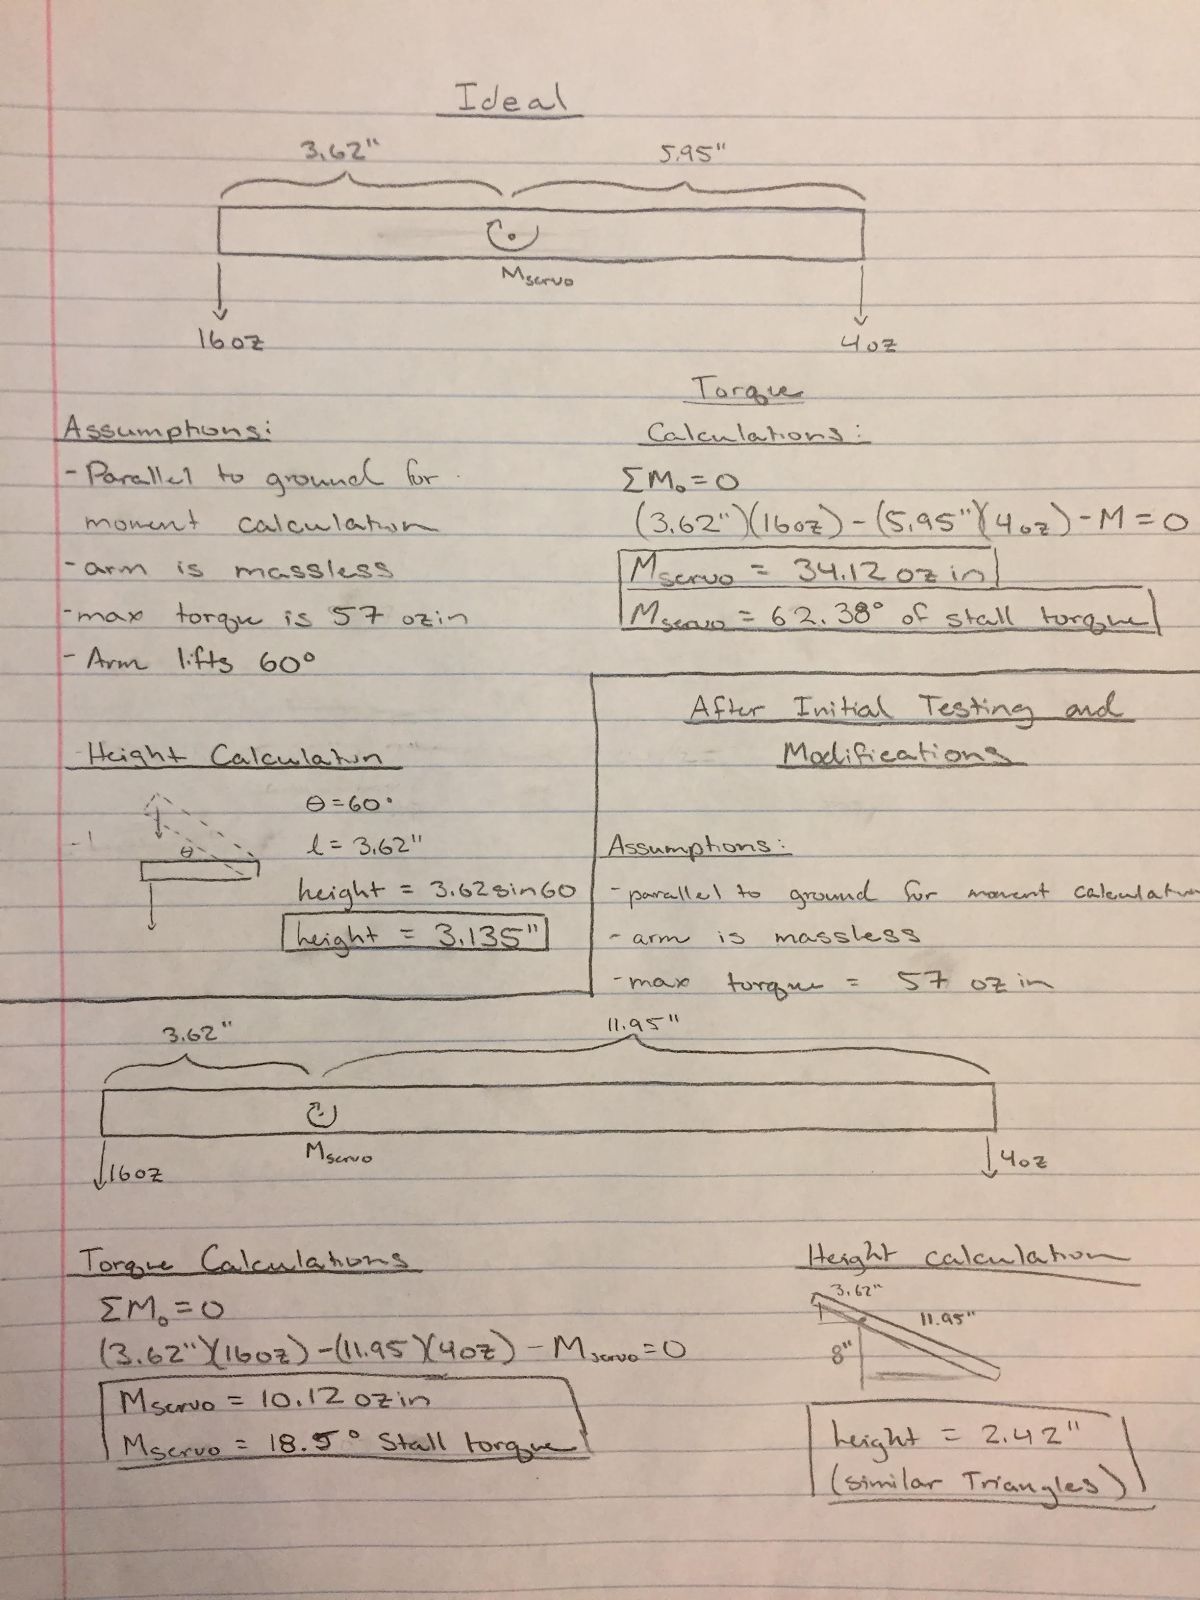 Ideal
3.62" 5.95"
Mservo
16oz 4oz
Assumptions:
- Parallel to ground for
moment calculation
- arm is massless
- max torque is 57 ozin
- Arm lifts 60°
Torque
Calculations:
ΣM₀=0
(3.62")(16oz) - (5.95")(4oz) - M = 0
Mservo = 34.12 oz in
Mservo = 62.38° of stall torque
Height Calculatun
θ
θ=60°
l = 3.62"
height = 3.62sin60
height = 3.135"
After Initial Testing and
Modifications
Assumptions:
- parallel to ground for moment calculatun
- arm is massless
- max torque = 57 oz in
3.62" 11.95"
Mservo
16oz 4oz
Torque Calculations
ΣM₀=0
(3.62")(16oz) - (11.95)(4oz) - Mservo=0
Mservo = 10.12 ozin
Mservo = 18.5° Stall torque
Height calculation
3.62"
11.95"
8"
height = 2.42"
(similar Triangles)